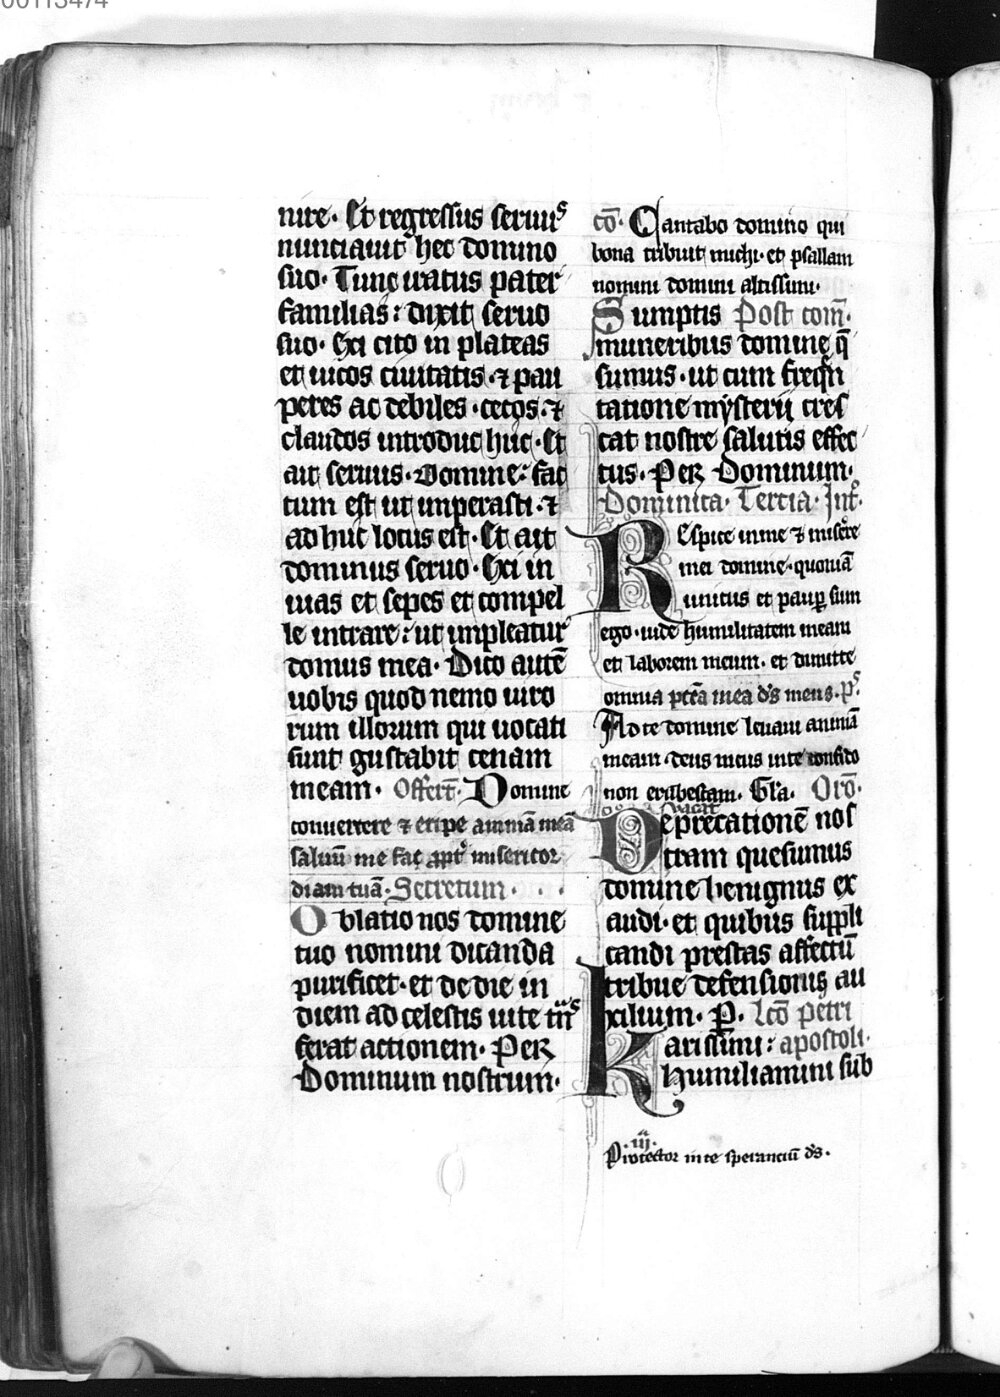 00113474
nire. Et regressus seruus
nunciauit hec domino
suo. Tunc iratus pater
familias: dixit seruo
suo. Exi cito in plateas
et uicos ciuitatis. ⁊ pau
peres ac debiles. cecos. ⁊
claudos introduc huc. Et
ait seruus. Domine: fac
tum est ut imperasti. ⁊
ad huc locus est. Et ait
dominus seruo. Exi in
uias et sepes et compel
le intrare: ut impleatur
domus mea. Dico autē
uobis quod nemo uiro
rum illorum qui uocati
sunt gustabit cenam
meam. Offert̄. Domine
conuertere ⁊ eripe animā meā
saluū me fac ꝓpt᷒ misericor
diam tuā. Secretum. . .
Oblatio nos domine
tuo nomini dicanda
purificet. et de die in
diem ad celestis uite t͛ns
ferat actionem. Per
Dominum nostrum.
cō. Cantabo domino qui
bona tribuit michi. et psallam
nomini domini altissimi.
Sumptis Post com̄.
muneribus domine q̄
sumus. ut cum freq̄n
tatione mysterii cres
cat nostre salutis effec
tus. Per Dominum.
Dominica. Tercia. Int᷒.
Respice in me ⁊ misere᷒re
mei domine. quoniā
unicus et paup̱ sum
ego. uide humilitatem meam
et laborem meum. et dimitte
omnia pccā mea ds̄ meus. ps.
Ad te domine leuaui animā
meam. deus meus in te confido
non erubescam. Gla. Orō.
uacat
Deprecationē nos
tram quesumus
domine benignus ex
audi. et quibus suppli
candi prestas affectū
tribue defensionis au
xilium. P. Lcō petri
Karissimi: apostoli.
Humiliamini sub
.iij.
Protector in te sperantiū ds̄.